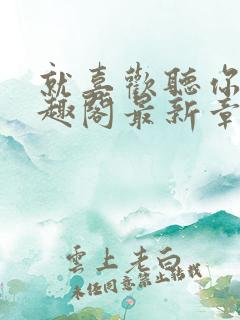 就喜歡聽你
趣閣最新章
雲上老白
未經同意禁止轉載